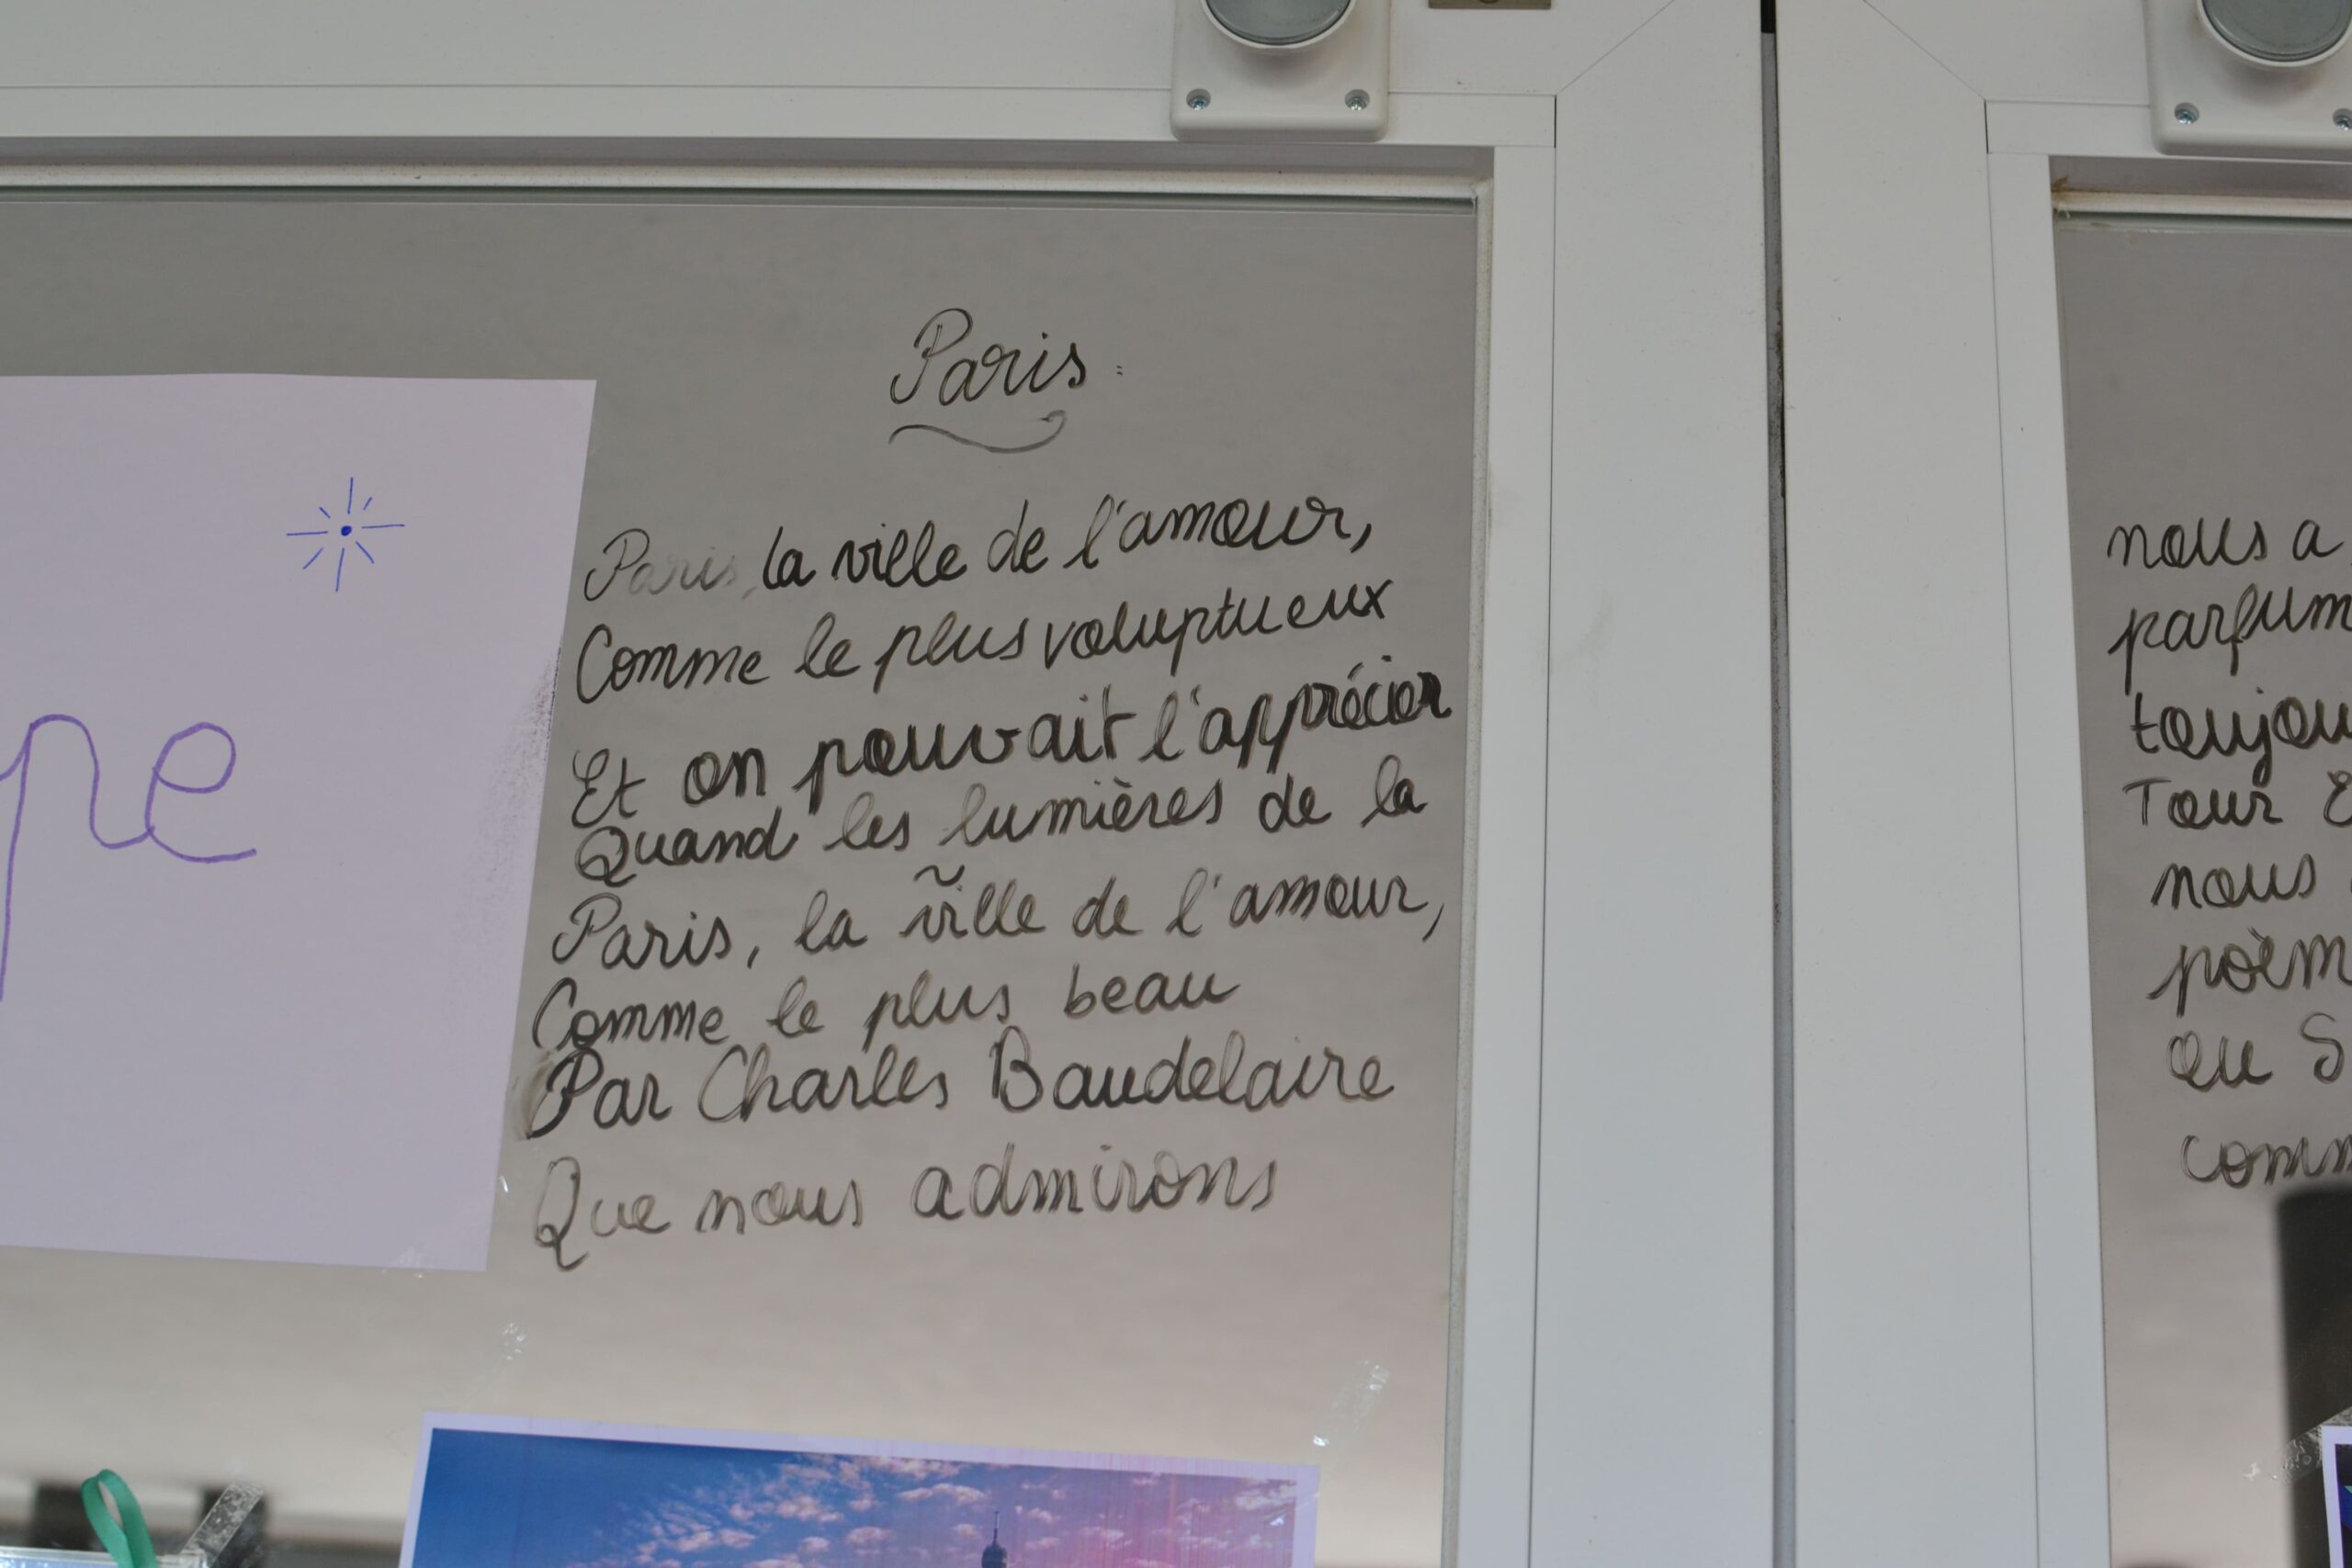 pe
Paris :
Paris, la ville de l'amour,
Comme le plus voluptueux
Et on pouvait l'apprécier
Quand les lumières de la
Paris, la ville de l'amour,
Comme le plus beau
Par Charles Baudelaire
Que nous admirons
nous a
parfum
toujou
Tour E
nous
poèm
ou S
comm